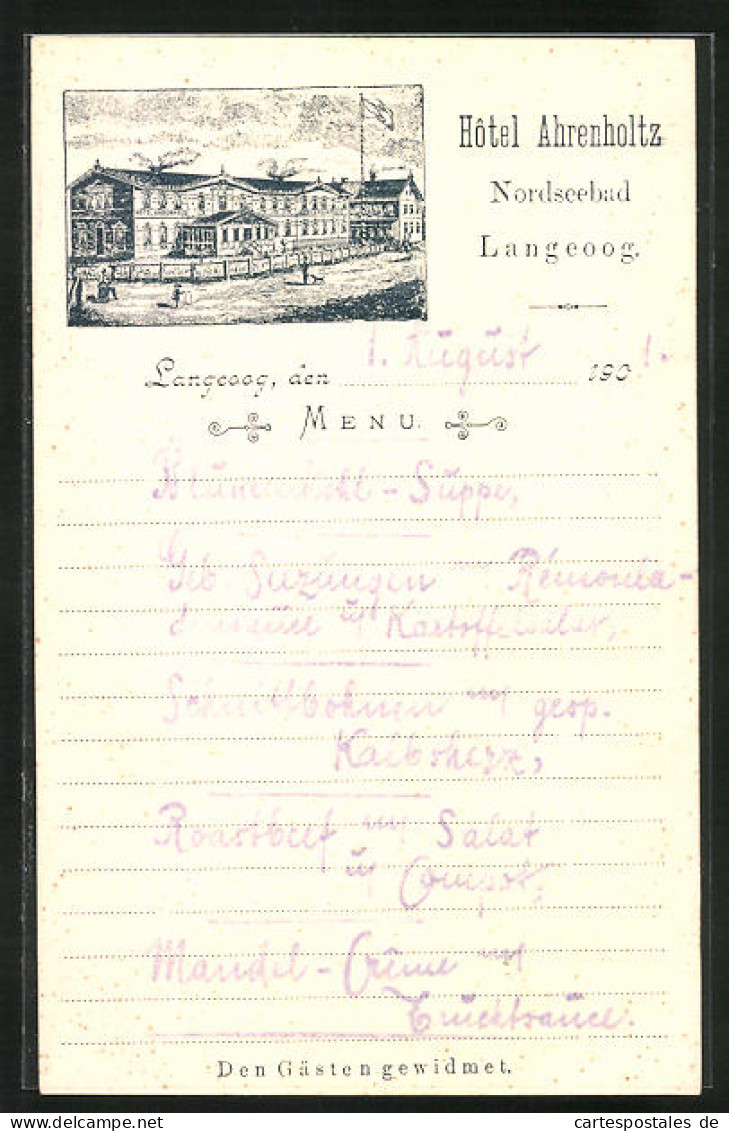 Hôtel Ahrenholtz
Nordseebad
Langeoog.
Langeoog, den 1. August 1901.
MENU.
Blumenkohl-Suppe,
Geb Seezungen mit Remoula-
densauce u Kartoffelsalat,
Schnittbohnen mit gesp.
Kalbsherz,
Roastbeef mit Salat
u Compot,
Mandel-Crême mit
Fruchtsauce.
Den Gästen gewidmet.
www.delcampe.net
cartespostales de